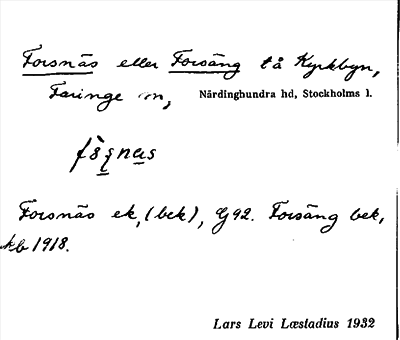 Forsnäs eller Forsäng tå Kyrkbyn,
Faringe sn, Närdinghundra hd, Stockholms l.
Forsnäs ek, (bek), G 92. Forsäng bek,
kb 1918.
Lars Levi Læstadius 1932